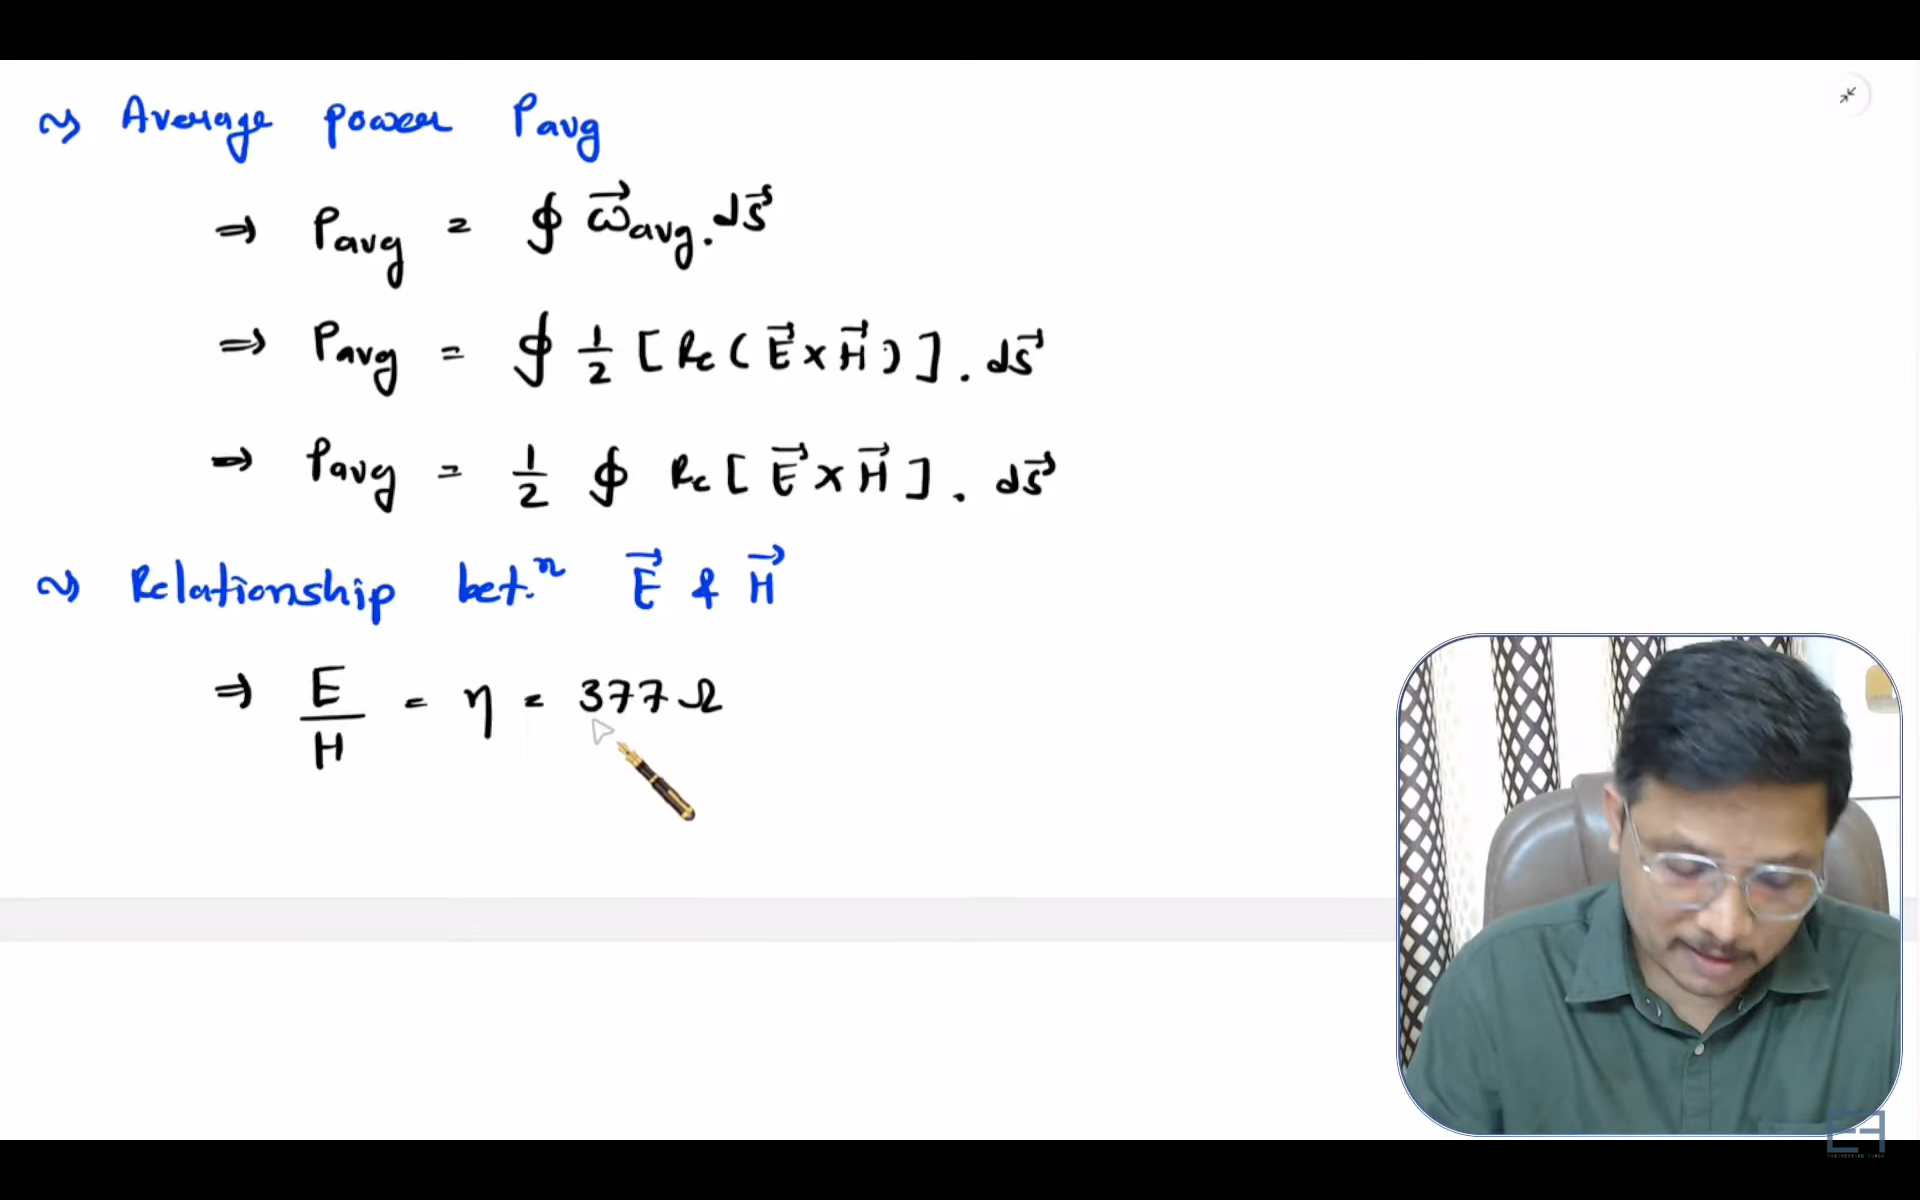 ~) Average power Pavg
⇒ Pavg = ∮ ω⃗avg . ds⃗
⇒ Pavg = ∮ 1/2 [Re(E⃗ × H⃗)] . ds⃗
⇒ Pavg = 1/2 ∮ Re[E⃗ × H⃗] . ds⃗
~) Relationship bet.ⁿ E⃗ & H⃗
⇒ E/H = η = 377Ω
EF
ENGINEERING FUNDA